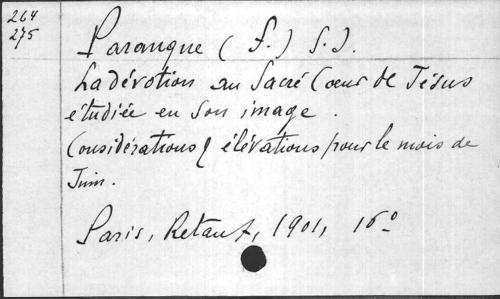 264
275
Parangue (F.) S.J.
La dévotion au Sacré Coeur de Jésus
étudiée en son image.
Considérations & élévations pour le mois de
Juin.
Paris, Retaux, 1901, 16º